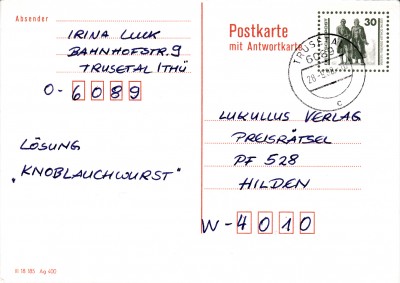 Absender
IRINA LUCK
BAHNHOFSTR. 9
TRUSETAL I THÜ
O- 6089
LÖSUNG
„KNOBLAUCHWURST"
III 18 185 Ag 400
Postkarte
mit Antwortkarte
30
TRUSETAL
6089
c
LUKULLUS VERLAG
PREISRÄTSEL
PF 528
HILDEN
W-4010